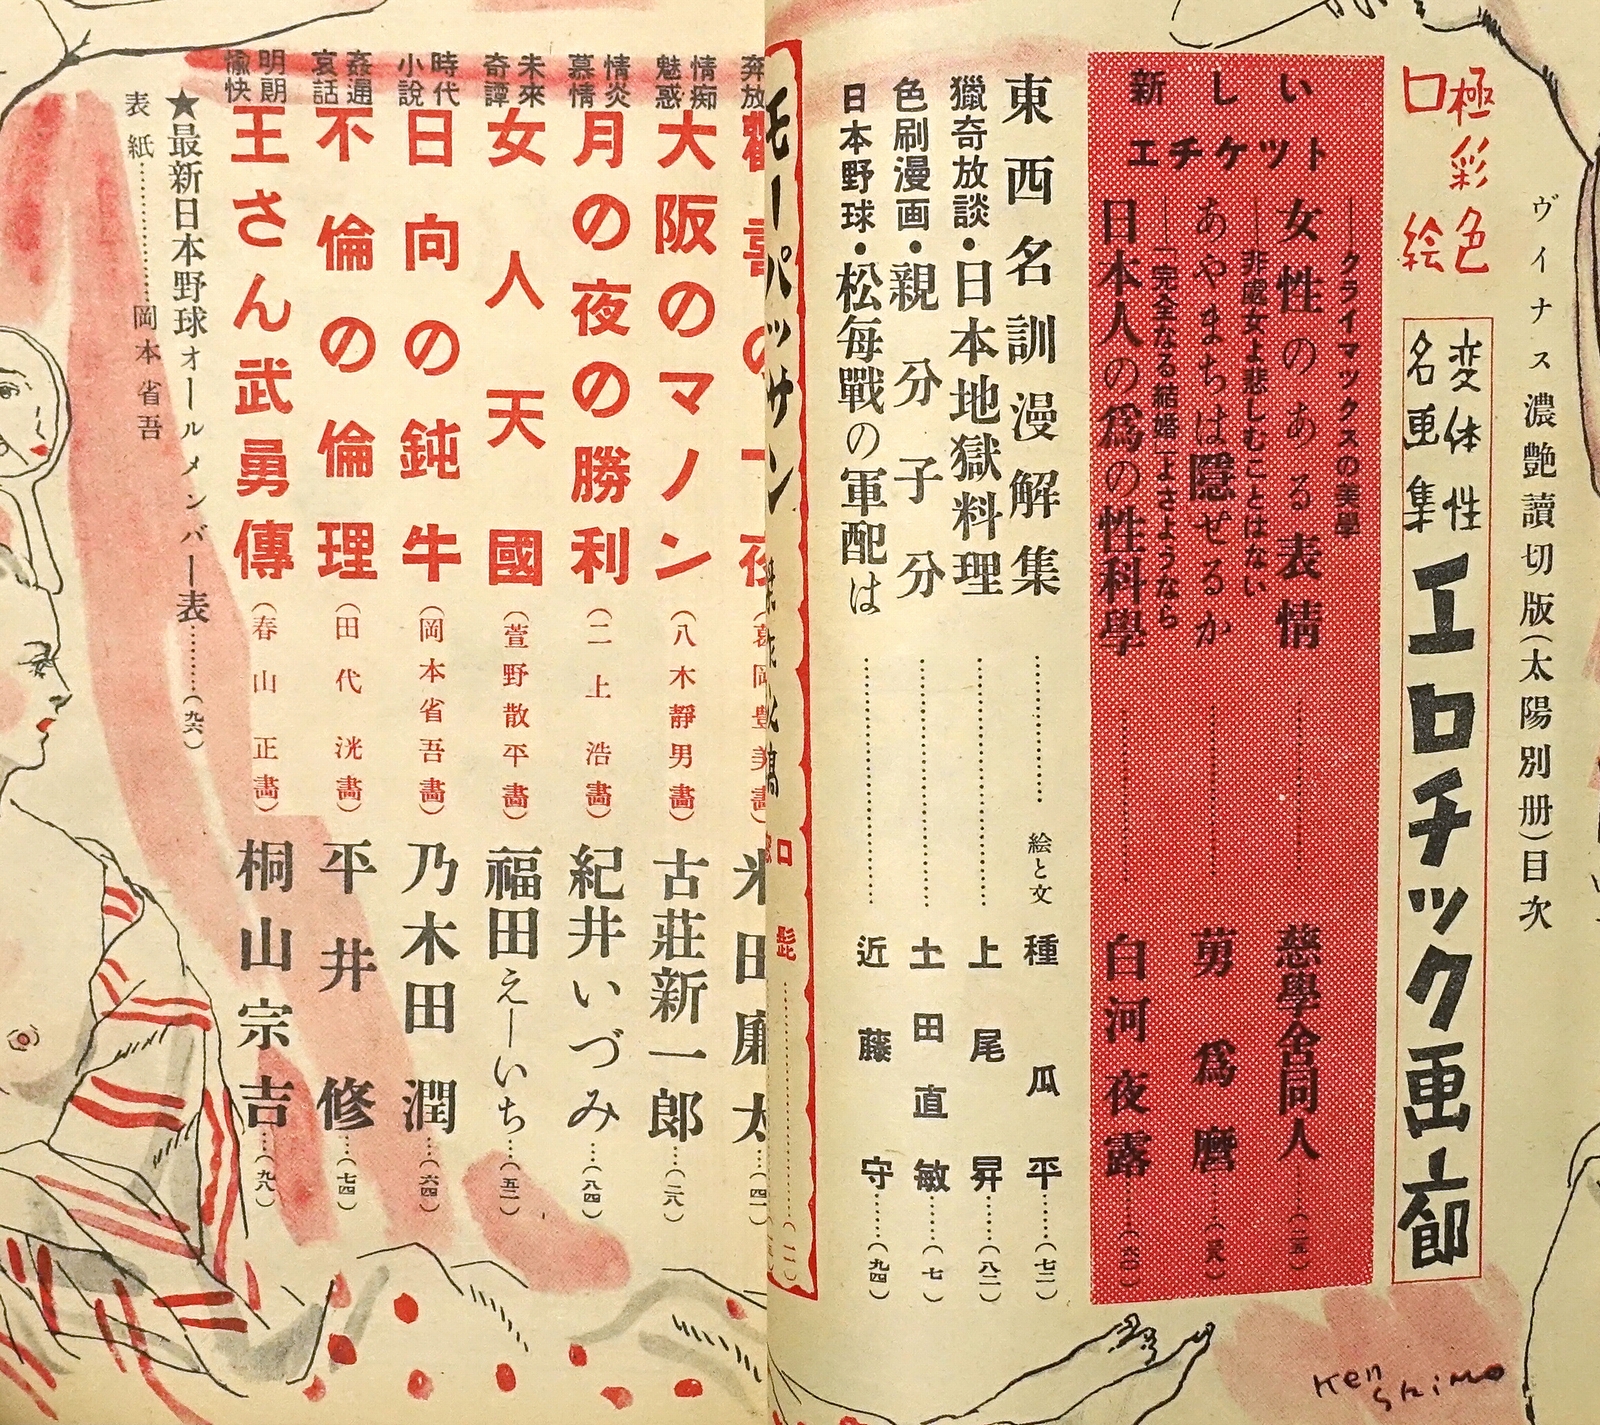 ヴィナス濃艶讀切版(太陽別册)目次
極彩色
口絵
変体性
名画集
エロチック画廊
新しい
エチケット
―クライマックスの美學
女性のある表情……慈學舎同人……(一五)
―非處女よ悲しむことはない
あやまちは隠せるか……
―「完全なる結婚」よさようなら
日本人の爲の性科學……白河夜露……(六〇)
東西名訓漫解集……絵と文 種瓜平……(七二)
獵奇放談・日本地獄料理……上尾昇……(八二)
色刷漫画・親分子分……土田直敏……(七)
日本野球・松毎戰の軍配は……近藤守……(九四)
モーパッサン
奔放
情痴
魅惑
大阪のマノン(八木靜男畵)古莊新一郎……(二八)
情炎
慕情
月の夜の勝利(二上浩畵)紀井いづみ……(八四)
未來
奇譚
女人天國(萱野散平畵)福田えーいち……(五二)
時代
小說
日向の鈍牛(岡本省吾畵)乃木田潤……(六四)
姦通
哀話
不倫の倫理(田代洸畵)平井修……(七四)
明朗
愉快
王さん武勇傳(春山正畵)桐山宗吉……(九八)
★最新日本野球オールメンバー表……(九六)
表紙……岡本省吾
Ken Shimo